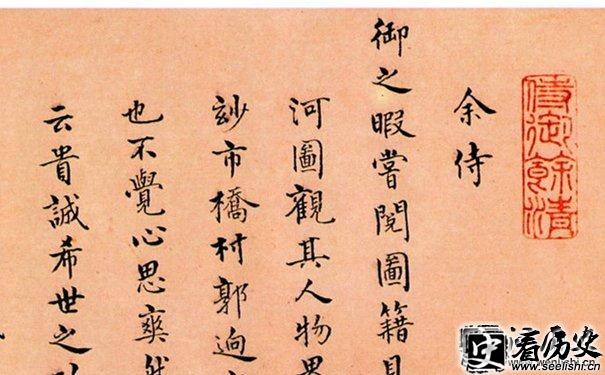 侍御餘清
余侍
御之暇嘗閱圖籍見
河圖觀其人物界
玅市橋村郭逈
也不覺心思爽然
云貴誠希世之
史 看历史
www.seelishi.cn